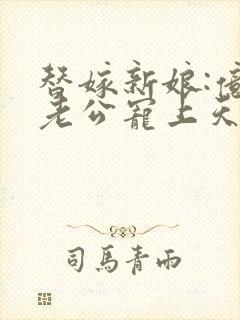 替嫁新娘:億
老公寵上天
司馬青雨